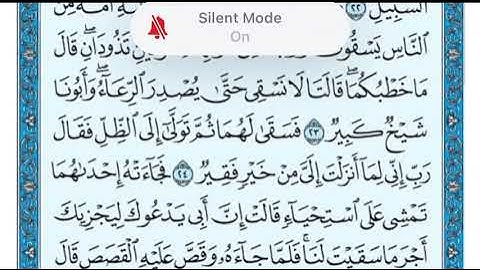 السَّبِيلِ ٢٢
Silent Mode
On
النَّاسِ يَسْقُونَ تَذُودَانِ ۖ قَالَ
مَا خَطْبُكُمَا ۖ قَالَتَا لَا نَسْقِي حَتَّىٰ يُصْدِرَ الرِّعَاءُ ۖ وَأَبُونَا
شَيْخٌ كَبِيرٌ ٢٣ فَسَقَىٰ لَهُمَا ثُمَّ تَوَلَّىٰ إِلَى الظِّلِّ فَقَالَ
رَبِّ إِنِّي لِمَا أَنزَلْتَ إِلَيَّ مِنْ خَيْرٍ فَقِيرٌ ٢٤ فَجَاءَتْهُ إِحْدَاهُمَا
تَمْشِي عَلَى اسْتِحْيَاءٍ قَالَتْ إِنَّ أَبِي يَدْعُوكَ لِيَجْزِيَكَ
أَجْرَ مَا سَقَيْتَ لَنَا ۚ فَلَمَّا جَاءَهُ وَقَصَّ عَلَيْهِ الْقَصَصَ قَالَ